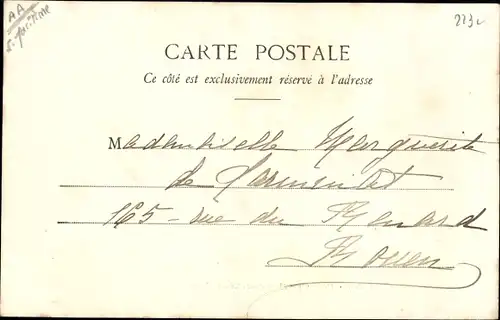 AA
S. Maritime
223
CARTE POSTALE
Ce côté est exclusivement réservé à l'adresse
Mademoiselle Marguerite
de
165 - rue du Renard
Rouen